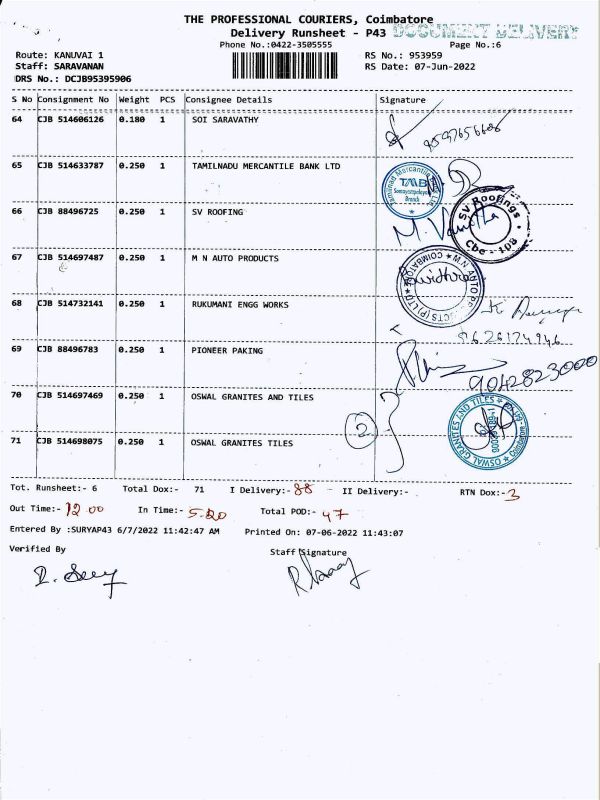 THE PROFESSIONAL COURIERS, Coimbatore
Delivery Runsheet - P43 DOCUMENT DELIVERY
Phone No.:0422-3505555 Page No.:6
Route: KANUVAI 1 RS No.: 953959
Staff: SARAVANAN RS Date: 07-Jun-2022
DRS No.: DCJB95395906
S No Consignment No Weight PCS Consignee Details Signature
64 CJB 514606126 0.180 1 SOI SARAVATHY
65 CJB 514633787 0.250 1 TAMILNADU MERCANTILE BANK LTD
Tamilnad Mercantile Bank Ltd TMB Branch
66 CJB 88496725 0.250 1 SV ROOFING
SV Roofings Cbe - 108
67 CJB 514697487 0.250 1 M N AUTO PRODUCTS
68 CJB 514732141 0.250 1 RUKUMANI ENGG WORKS
69 CJB 88496783 0.250 1 PIONEER PAKING
9042823000
70 CJB 514697469 0.250 1 OSWAL GRANITES AND TILES
2
OSWAL GRANITES AND TILES
71 CJB 514698075 0.250 1 OSWAL GRANITES TILES
Tot. Runsheet:- 6 Total Dox:- 71 I Delivery:- 88 II Delivery:- RTN Dox:- 3
Out Time:- 12.00 In Time:- 5.20 Total POD:- 47
Entered By :SURYAP43 6/7/2022 11:42:47 AM Printed On: 07-06-2022 11:43:07
Verified By Staff Signature